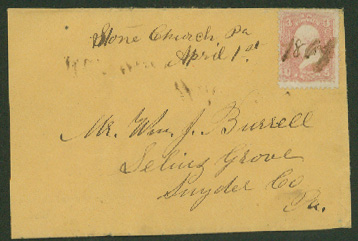 Stone Church Pa
April 1st
1864
Mr. Wm. J. Burrell
Selins Grove
Snyder Co
Pa.